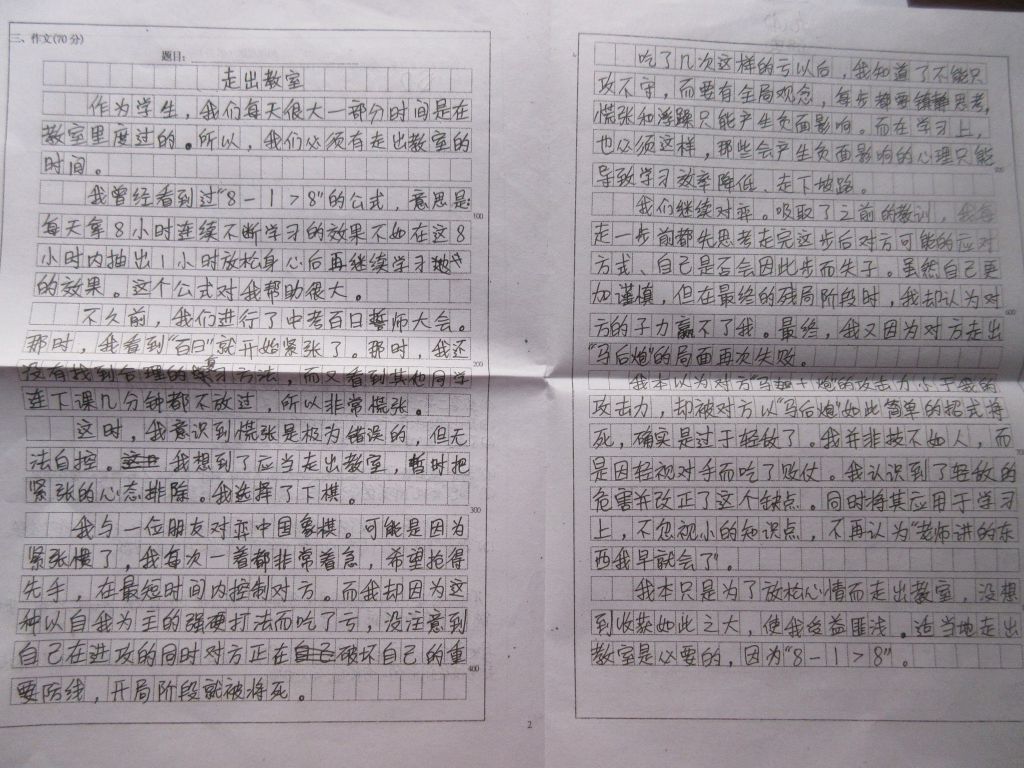 三、作文(70分)
题目:
走出教室
作为学生，我们每天很大一部分时间是在
教室里度过的。所以，我们必须有走出教室的
时间。
我曾经看到过“8－1＞8”的公式，意思是:
100
每天拿8小时连续不断学习的效果不如在这8
小时内抽出1小时放松身心后再继续学习
的效果。这个公式对我帮助很大。
不久前，我们进行了中考百日誓师大会。
那时，我看到“百日”就开始紧张了。那时，我还
200
没有找到合理的复习方法，而又看到其他同学
连下课几分钟都不放过，所以非常慌张。
这时，我意识到慌张是极为错误的，但无
法自控。我想到了应当走出教室，暂时把
紧张的心态排除。我选择了下棋。
300
我与一位朋友对弈中国象棋。可能是因为
紧张惯了，我每次一着都非常着急，希望抢得
先手，在最短时间内控制对方。而我却因为这
种以自我为主的强硬打法而吃了亏，没注意到
自己在进攻的同时对方正在破坏自己的重
400
要防线，开局阶段就被将死。
2
吃了几次这样的亏以后，我知道了不能只
攻不守，而要有全局观念，每步都要镇静思考，
慌张和浮躁只能产生负面影响。而在学习上，
也必须这样，那些会产生负面影响的心理只能
500
导致学习效率降低、走下坡路。
我们继续对弈。吸取了之前的教训，我每
走一步前都先思考走完这步后对方可能的应对
方式、自己是否会因此步而失子。虽然自己更
加谨慎，但在最终的残局阶段时，我却认为对
600
方的子力赢不了我。最终，我又因为对方走出
“马后炮”的局面再次失败。
我本以为对方“马超士炮”的攻击力小于我的
攻击力，却被对方以“马后炮”如此简单的招式将
死，确实是过于轻敌了。我并非技不如人，而
700
是因轻视对手而吃了败仗。我认识到了轻敌的
危害并改正了这个缺点。同时将其应用于学习
上，不忽视小的知识点，不再认为“老师讲的东
西我早就会了”。
我本只是为了放松心情而走出教室，没想
到收获如此之大，使我受益匪浅。适当地走出
教室是必要的，因为“8－1＞8”。